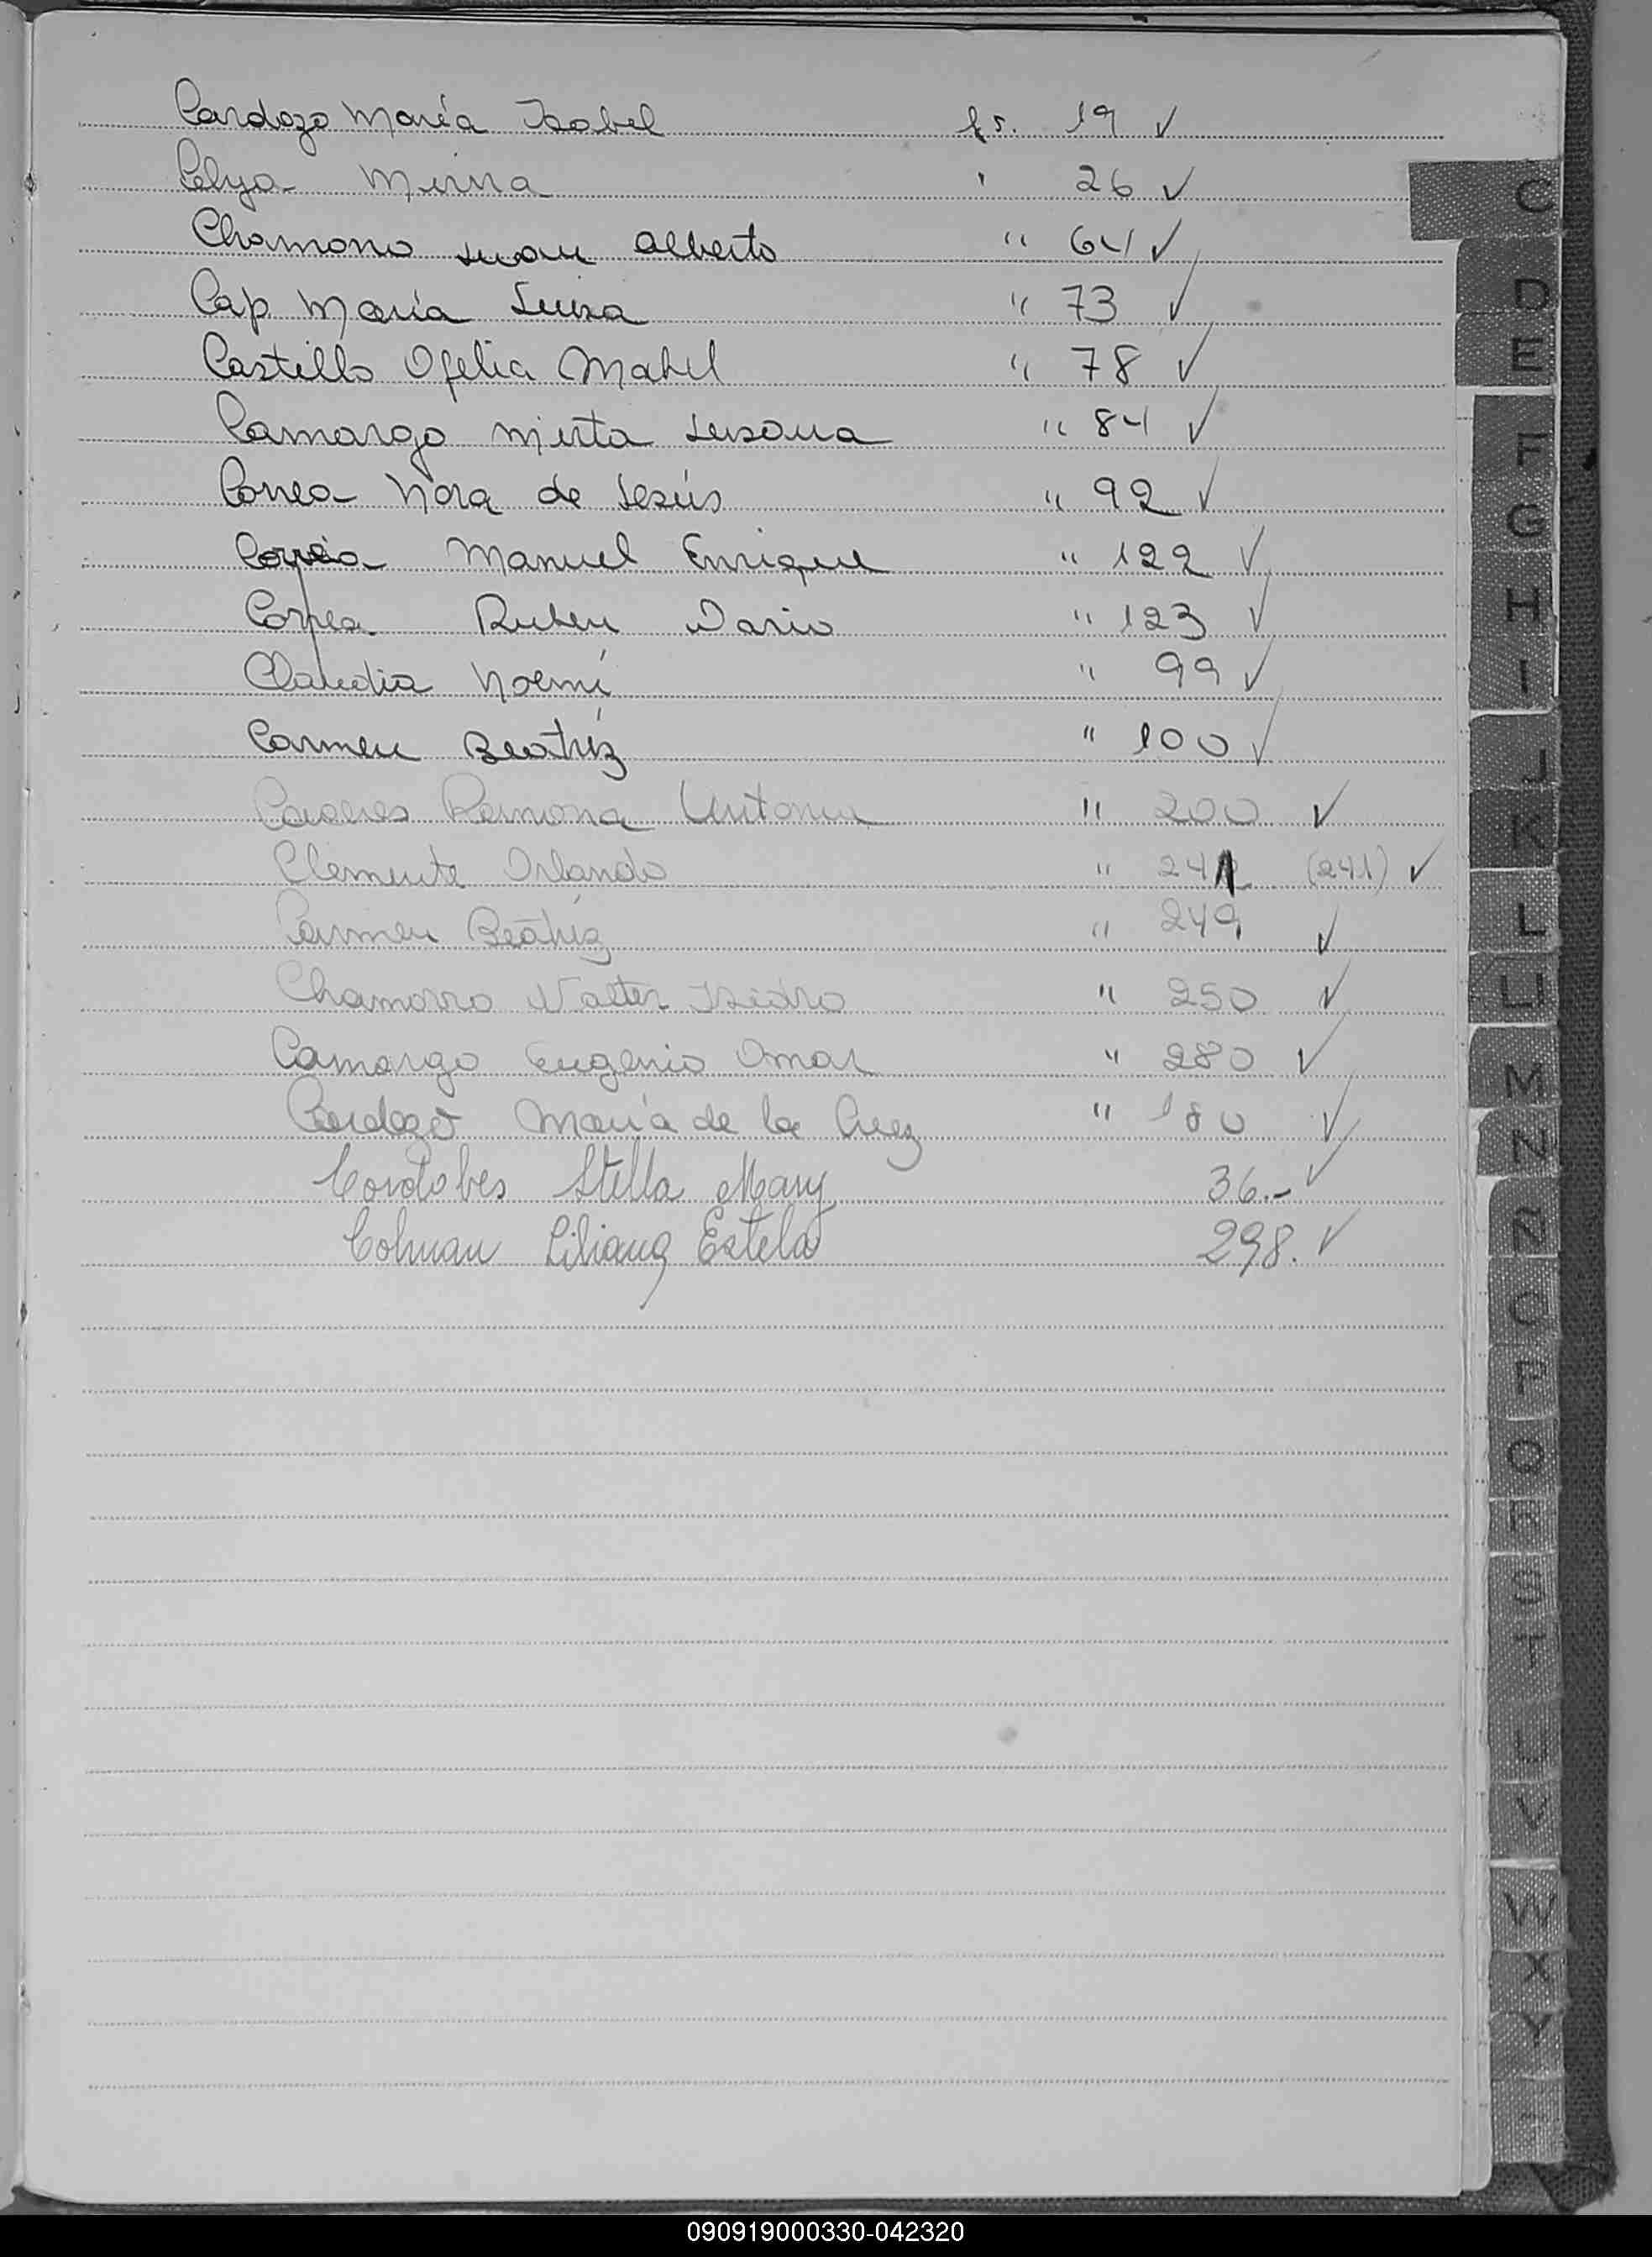 Cardozo María Isabel fs. 19 ✓
Celya Mirna " 26 ✓
Chamorro Juan Alberto " 64 ✓
Cap María Luisa " 73 ✓
Castillo Ofelia Mabel " 78 ✓
Camargo Mirta Susana " 84 ✓
Correa Nora de Jesús " 92 ✓
Correa Manuel Enrique " 122 ✓
Correa Ruben Dario " 123 ✓
Claudia Noemí " 99 ✓
Carmen Beatríz " 100 ✓
Ramona Antonia " 200 ✓
Clemente Orlando " 241 (241) ✓
Carmen Beatríz " 249 ✓
Chamorro Walter Isidro " 250 ✓
Camargo Eugenio Omar " 280 ✓
Cardozo María de la Cruz " 180 ✓
Cordobes Stella Mary 36.- ✓
Colman Liliana Estela 298. ✓
C
D
E
F
G
H
I
J
K
L
LL
M
N
Ñ
O
P
Q
R
S
T
U
V
W
X
Y
090919000330-042320